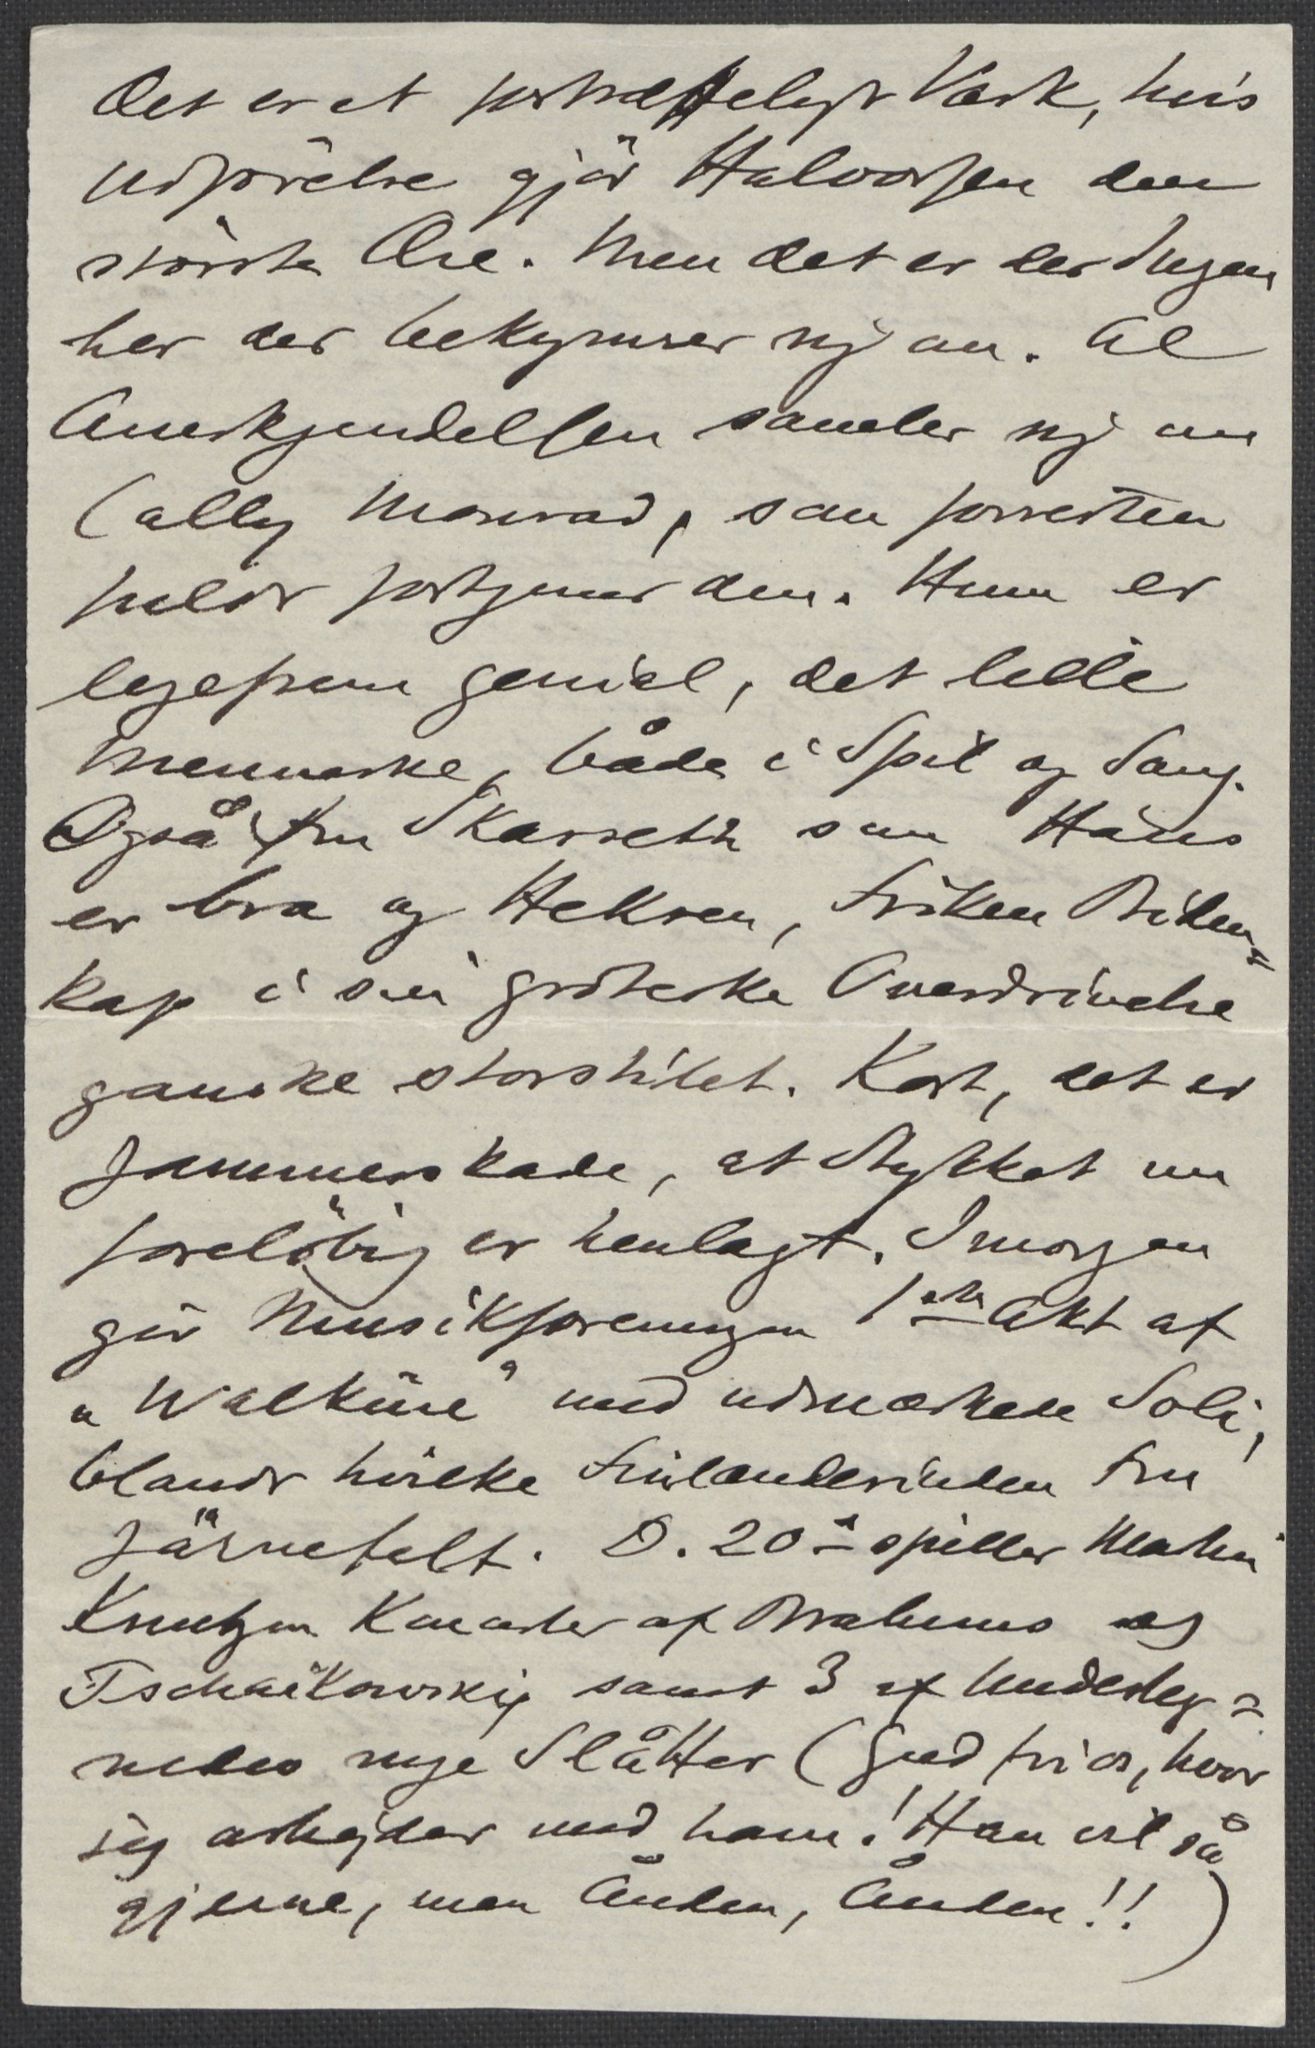 Det er et fortræffeligt Værk, hvis
Udførelse gjör Halvorsen den
störste Ære. Men det er der Ingen
her der bekymrer sig om. Al
Anerkjendelsen samler sig om
Cally Monrad, som forresten
fuldt fortjener den. Hun er
ligefrem genial, det lille
Menneske, både i Spil og Sang.
Også Fru Skarseth som Hans
er bra og Heksen, Fröken Biden=
kap i sin groteske Overdrivelse
ganske storstilet. Kort, det er
Jammerskade, at Stykket nu
forelöbig er henlagt. Imorgen
gir Musikforeningen 1ste Akt af
„Walküre" med udmærkede Soli,
blandt hvilke Finlænderinden Fru
Järnefelt. D. 20de spiller Martin
Knutzen Koncerter af Brahms og
Tschaikowsky samt 3 af Underteg=
nedes nye Slåtter (Gud fri os, hvor
jeg arbejder med ham! Han vil så
gjerne, men Ånden, Ånden!!)